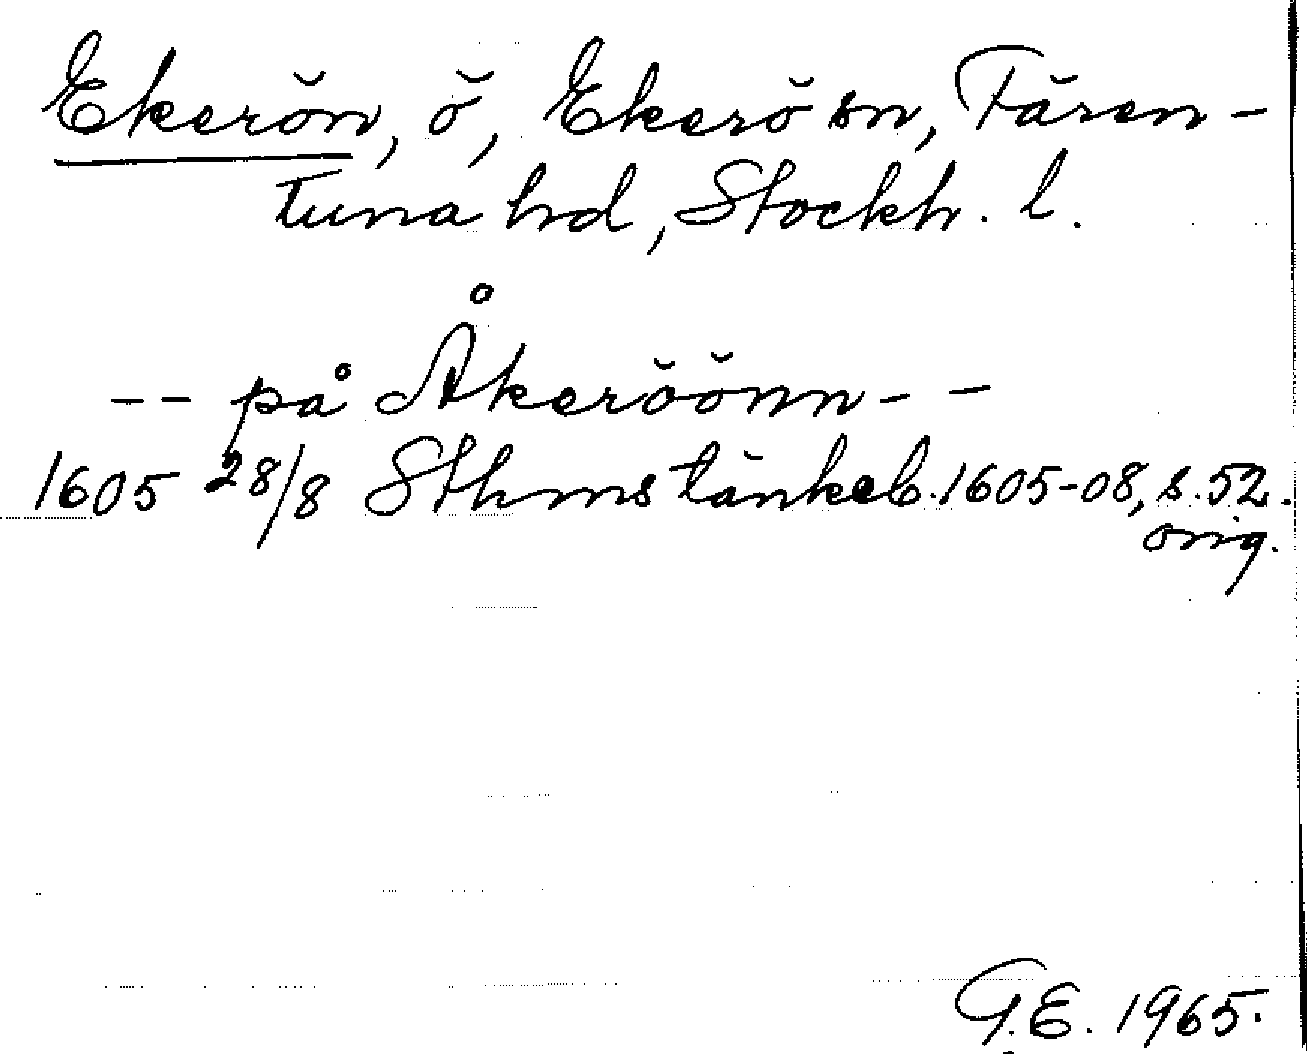 Ekerön, ö, Ekerö sn, Fären-
tuna hd, Stockh. l.
-- på Åkeröönn--
1605 28/8 Sthms tänkeb. 1605-08, s. 52.
orig.
G.E. 1965.